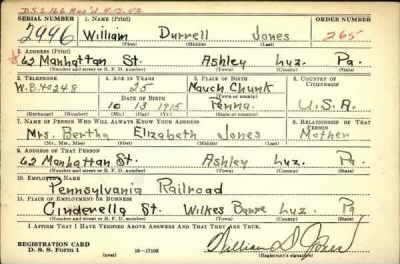 D.S.S. 166 Rec'd 4-17-42
SERIAL NUMBER 1. NAME (Print) ORDER NUMBER
2996 William Durrell Jones 265
(First) (Middle) (Last)
2. ADDRESS (Print)
62 Manhattan St. Ashley Luz. Pa.
(Number and street or R. F. D. number) (Town) (County) (State)
3. TELEPHONE 4. AGE IN YEARS 5. PLACE OF BIRTH 6. COUNTRY OF CITIZENSHIP
W.B. 40248 25 Mauch Chunk
DATE OF BIRTH (Town or county)
10 13 1915 Penna. U.S.A.
(Exchange) (Number) (Mo.) (Day) (Yr.) (State or country)
7. NAME OF PERSON WHO WILL ALWAYS KNOW YOUR ADDRESS 8. RELATIONSHIP OF THAT PERSON
Mrs. Bertha Elizabeth Jones Mother
(Mr., Mrs., Miss) (First) (Middle) (Last)
9. ADDRESS OF THAT PERSON
62 Manhattan St. Ashley Luz. Pa.
(Number and street or R. F. D. number) (Town) (County) (State)
10. EMPLOYER'S NAME
Pennsylvania Railroad
11. PLACE OF EMPLOYMENT OR BUSINESS
Cinderella St. Wilkes Barre Luz. Pa
(Number and street or R. F. D. number) (Town) (County) (State)
I AFFIRM THAT I HAVE VERIFIED ABOVE ANSWERS AND THAT THEY ARE TRUE.
REGISTRATION CARD
D. S. S. Form 1 (over) 16-17105 William D. Jones
(Registrant's signature)